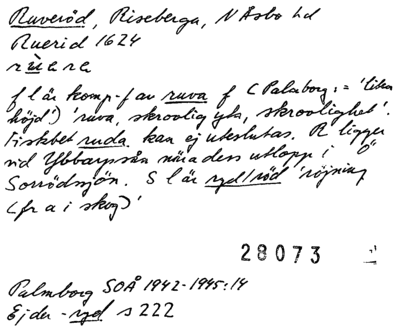 Ruveröd, Riseberga, N Åsbo hd
Ruerid 1624
rùera
f l är komp-f av ruva f (Palmborg:= 'liten
höjd') 'ruva, skrovlig yta, skrovlighet'.
Fiskbet ruda kan ej uteslutas. R ligger
vid Ybbarpsån nära dess utlopp i Ö
Sorrödssjön. S l är ryd/röd 'röjning
(fr a i skog)'
28073
Palmborg SOÅ 1942-1945:14
Ejder -ryd s 222